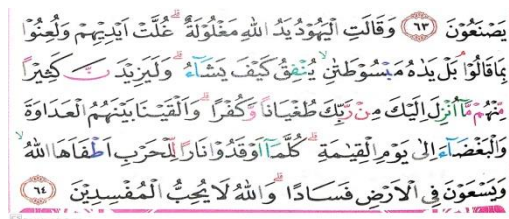 يَصْنَعُوْنَ ﴿٦٣﴾ وَقَالَتِ الْيَهُوْدُ يَدُ اللّٰهِ مَغْلُوْلَةٌ ۗ غُلَّتْ اَيْدِيْهِمْ وَلُعِنُوْا
بِمَا قَالُوْا ۘ بَلْ يَدٰهُ مَبْسُوْطَتٰنِ ۙ يُنْفِقُ كَيْفَ يَشَاۤءُ ۗ وَلَيَزِيْدَنَّ كَثِيْرًا
مِّنْهُمْ مَّآ اُنْزِلَ اِلَيْكَ مِنْ رَّبِّكَ طُغْيَانًا وَّكُفْرًا ۗ وَاَلْقَيْنَا بَيْنَهُمُ الْعَدَاوَةَ
وَالْبَغْضَاۤءَ اِلٰى يَوْمِ الْقِيٰمَةِ ۗ كُلَّمَآ اَوْقَدُوْا نَارًا لِّلْحَرْبِ اَطْفَاَهَا اللّٰهُ ۙ
وَيَسْعَوْنَ فِى الْاَرْضِ فَسَادًا ۗ وَاللّٰهُ لَا يُحِبُّ الْمُفْسِدِيْنَ ﴿٦٤﴾